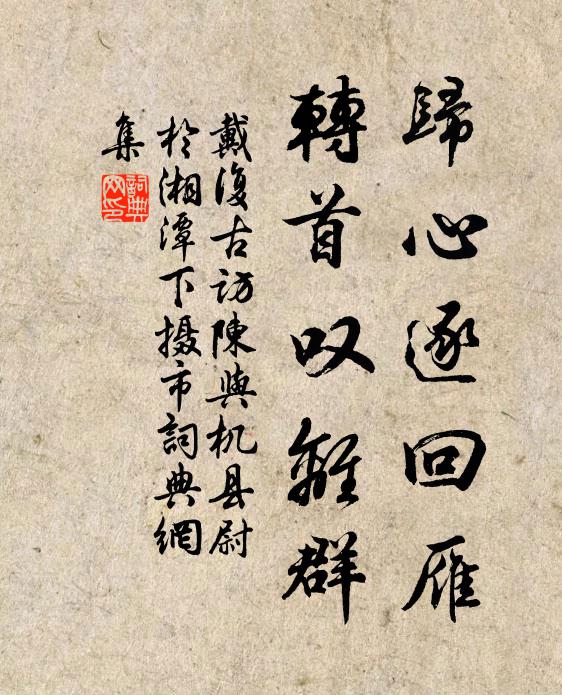 歸心逐回雁
轉首叹離群
戴復古访陳與机县尉
於湘潭下摄市詞典網
集
詞典
网印